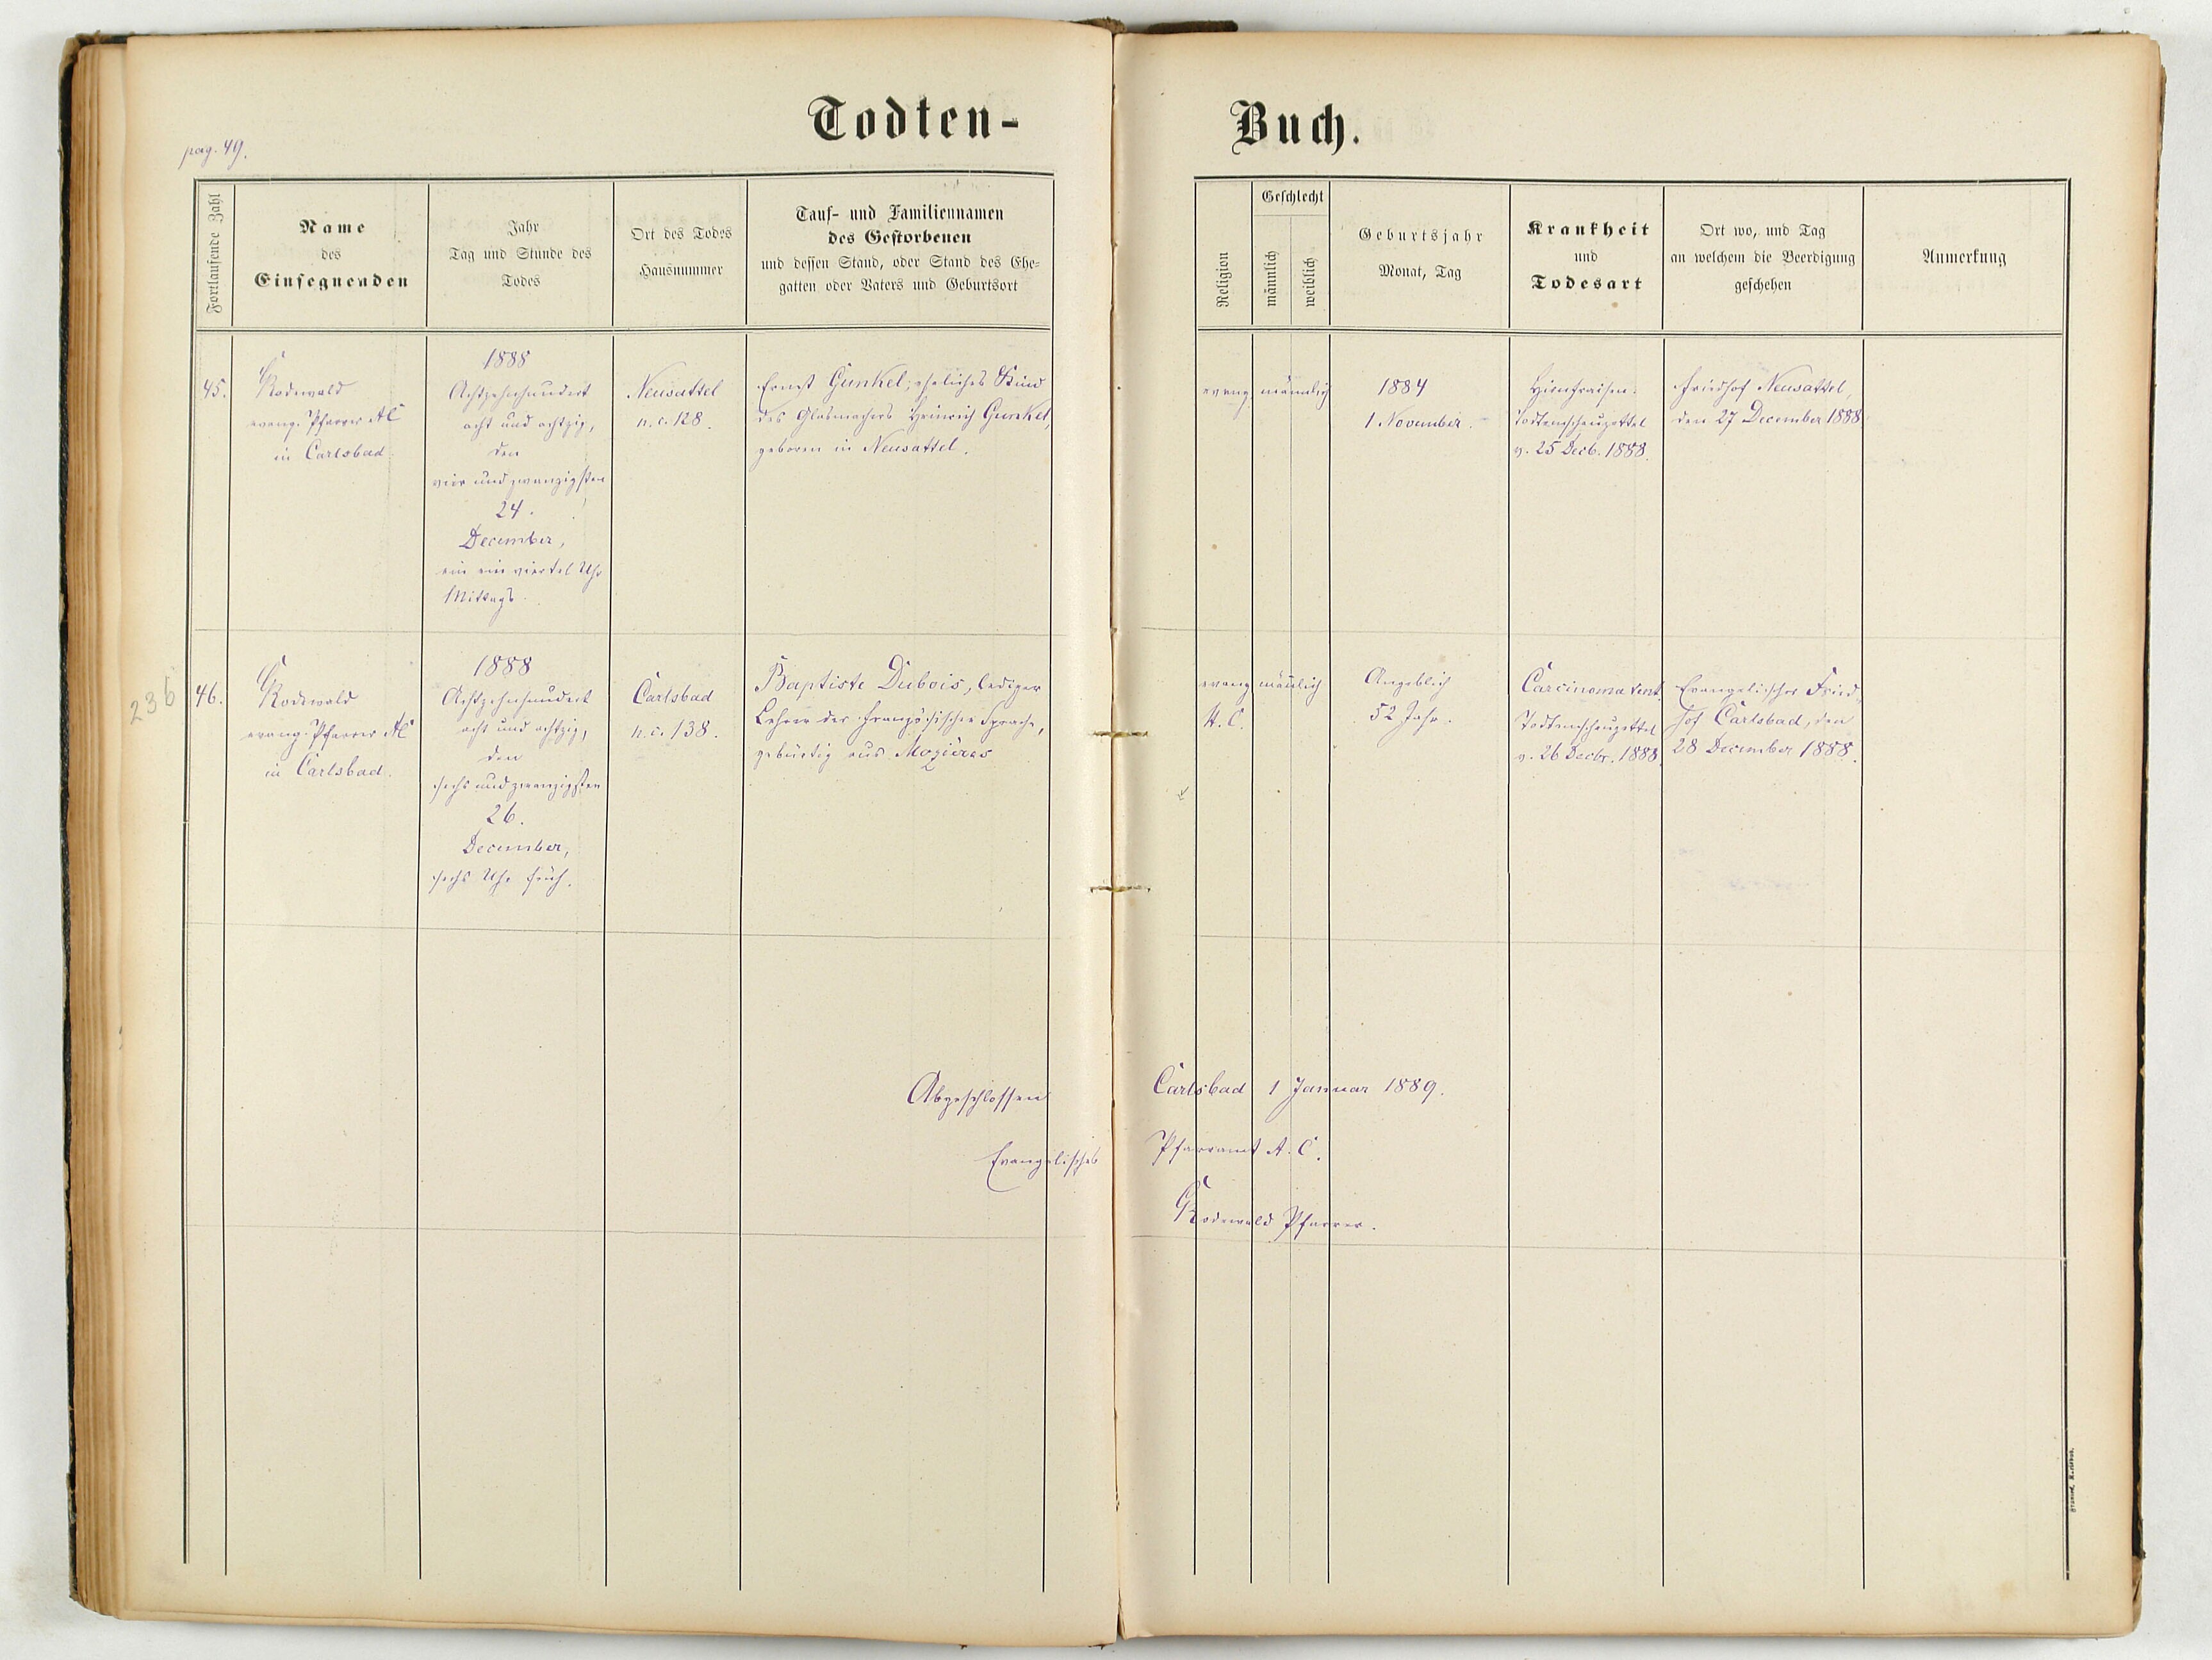 Todten-
Buch.
pag. 49.
Fortlaufende Zahl
Name
des
Einsegnenden
Jahr
Tag und Stunde des
Todes
Ort des Todes
Hausnummer
Tauf- und Familiennamen
des Gestorbenen
und dessen Stand, oder Stand des Ehe-
gatten oder Vaters und Geburtsort
Religion
Geschlecht
männlich
weiblich
Geburtsjahr
Monat, Tag
Krankheit
und
Todesart
Ort wo, und Tag
an welchem die Beerdigung
geschehen
Anmerkung
45.
Rodewald
evang. Pfarrer AC
in Carlsbad.
1888
Achtzehnhundert
acht und achtzig,
den
vier und zwanzigsten
24.
December,
ein ein viertel Uhr
Mittags.
Neusattel
n. c. 128.
Ernst Gunkel, eheliches Kind
des Glasmachers Heinrich Gunkel,
geboren in Neusattel.
evang
männlich
1884
1 November.
Hirnfraisen.
Todtenschauzettel
v. 25 Decb. 1888.
Friedhof Neusattel,
den 27 December 1888
236
46.
Rodewald
evang. Pfarrer AC
in Carlsbad.
1888
Achtzehnhundert
acht und achtzig,
den
sechs und zwanzigsten
26.
December,
sechs Uhr früh.
Carlsbad
n. c. 138.
Baptiste Dubois, lediger
Lehrer der französischen Sprache,
gebürtig aus Mozières
evang
H. C.
männlich
Angeblich
52 Jahr.
Carcinoma
Todtenschauzettel
v. 26 Decbr. 1888.
Evangelischer Fried-
hof Carlsbad, den
28 December 1888.
Abgeschlossen Carlsbad 1 Januar 1889.
Evangelisches Pfarramt A. C.
Rodewald Pfarrer.